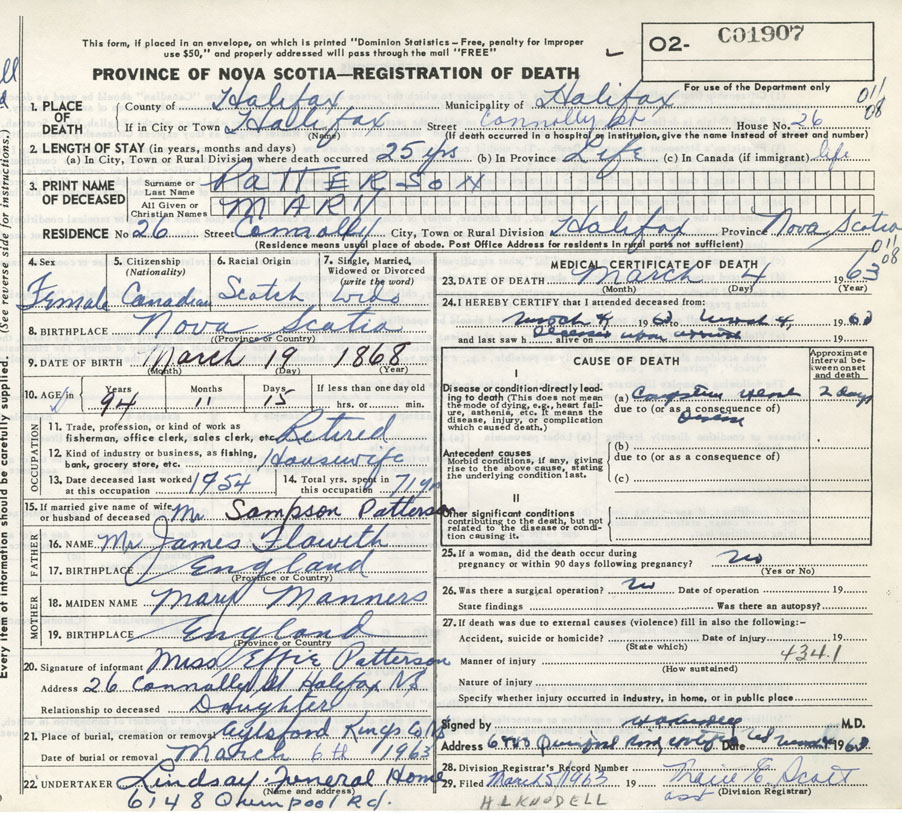 This form, if placed in an envelope, on which is printed "Dominion Statistics – Free, penalty for improper
use $50," and properly addressed will pass through the mail "FREE"
O2- C01907
PROVINCE OF NOVA SCOTIA—REGISTRATION OF DEATH
For use of the Department only
011
08
1. PLACE OF DEATH County of Halifax Municipality of Halifax
If in City or Town Halifax (Name) Street Connolly St House No. 26
(If death occurred in a hospital or institution, give the name instead of street and number)
2. LENGTH OF STAY (in years, months and days)
(a) In City, Town or Rural Division where death occurred 25 yrs (b) In Province Life (c) In Canada (if immigrant) life
3. PRINT NAME OF DECEASED Surname or Last Name PATTERSON
All Given or Christian Names MARY
RESIDENCE No 26 Street Connolly City, Town or Rural Division Halifax Province Nova Scotia
(Residence means usual place of abode. Post Office Address for residents in rural parts not sufficient)
011
08
4. Sex Female
5. Citizenship (Nationality) Canadian
6. Racial Origin Scotch
7. Single, Married, Widowed or Divorced (write the word) wido
8. BIRTHPLACE Nova Scotia
(Province or Country)
9. DATE OF BIRTH March 19 1868
(Month) (Day) (Year)
10. AGE Years 94 Months 11 Days 15 If less than one day old
hrs. or min.
OCCUPATION
11. Trade, profession, or kind of work as
fisherman, office clerk, sales clerk, etc. Retired
12. Kind of industry or business, as fishing,
bank, grocery store, etc. Housewife
13. Date deceased last worked at this occupation 1954
14. Total yrs. spent in this occupation 71 yrs
15. If married give name of wife or husband of deceased Mr Sampson Patterson
FATHER
16. NAME Mr James Flawith
17. BIRTHPLACE England
(Province or Country)
MOTHER
18. MAIDEN NAME Mary Manners
19. BIRTHPLACE England
(Province or Country)
20. Signature of informant Miss Effie Patterson
Address 26 Connolly St Halifax NS
Relationship to deceased Daughter
21. Place of burial, cremation or removal Aylsford Kings Co NS
Date of burial or removal March 6th 1963
22. UNDERTAKER Lindsay Funeral Home
(Name and address)
6148 Rd.
MEDICAL CERTIFICATE OF DEATH
23. DATE OF DEATH March 4 1963
(Month) (Day) (Year)
24. I HEREBY CERTIFY that I attended deceased from:
March 4 19 63 to March 4, 19 63
and last saw h alive on 19
CAUSE OF DEATH
Approximate interval between onset and death
I
Disease or condition directly leading to death (This does not mean
the mode of dying, e.g., heart failure, asthenia, etc. It means the
disease, injury, or complication
which caused death.)
(a) Congestive Heart 2 days
due to (or as a consequence of)
Disease
Antecedent causes
Morbid conditions, if any, giving
rise to the above cause, stating
the underlying condition last.
(b)
due to (or as a consequence of)
(c)
II
Other significant conditions
contributing to the death, but not
related to the disease or condition causing it.
25. If a woman, did the death occur during
pregnancy or within 90 days following pregnancy? No
(Yes or No)
26. Was there a surgical operation? No Date of operation 19
State findings Was there an autopsy?
27. If death was due to external causes (violence) fill in also the following:-
Accident, suicide or homicide? Date of injury 19
(State which)
4341
Manner of injury
(How sustained)
Nature of injury
Specify whether injury occurred in industry, in home, or in public place
Signed by M.D.
Address Date 1963
28. Division Registrar's Record Number
29. Filed March 5/1963 19 Marie E. Scott
asst (Division Registrar)
H L KNODELL
Every item of information should be carefully supplied. (See reverse side for instructions.)